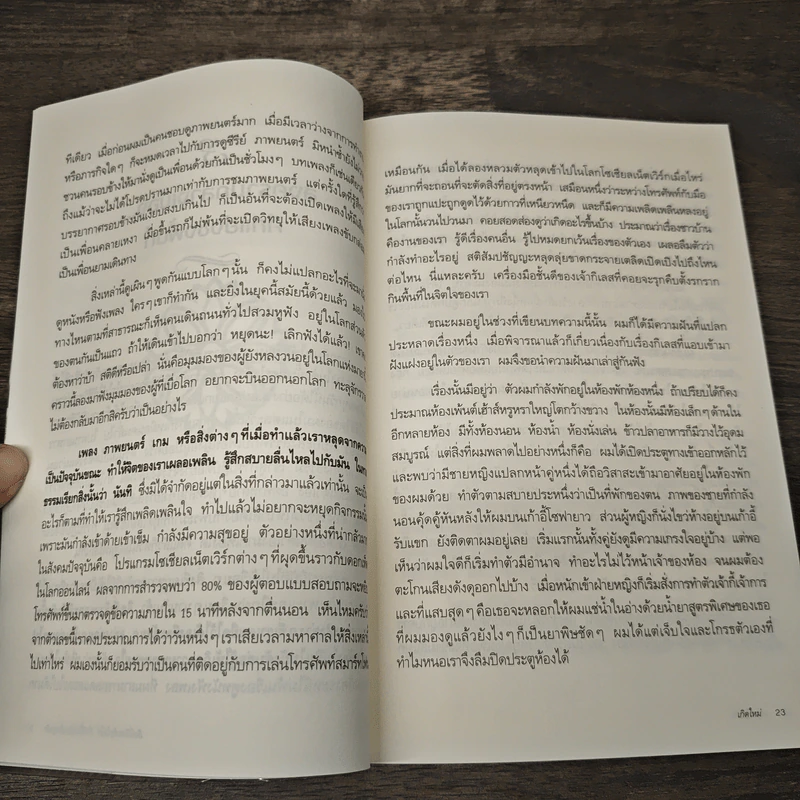 ทีเดียว เมื่อก่อนผมเป็นคนชอบดูภาพยนตร์มาก เมื่อมีเวลาว่างจากการ
หรือภารกิจใดๆ ก็จะหมดเวลาไปกับการดูซีรีย์ ภาพยนตร์ มิหนำซ้ำยัง
ชวนคนรอบข้างให้มานั่งดูเป็นเพื่อนด้วยกันเป็นชั่วโมงๆ บทเพลงก็เช่นเดียว
ถึงแม้ว่าจะไม่ได้โปรดปรานมากเท่ากับการชมภาพยนตร์ แต่ครั้งใดที่รู้สึก
บรรยากาศรอบข้างมันเงียบสงบเกินไป ก็เป็นอันที่จะต้องเปิดเพลงให้มี
เป็นเพื่อนคลายเหงา เมื่อขึ้นรถก็ไม่พ้นที่จะเปิดวิทยุให้เสียงเพลงขับกล่อม
เป็นเพื่อนยามเดินทาง
สิ่งเหล่านี้ดูเผินๆ พูดกันแบบโลกๆ นั้น ก็คงไม่แปลกอะไรที่จะมา
ดูหนังหรือฟังเพลง ใครๆ เขาก็ทำกัน และยิ่งในยุคนี้สมัยนี้ด้วยแล้ว มอง
ทางไหนตามที่สาธารณะก็เห็นคนเดินถนนทั่วไปสวมหูฟัง อยู่ในโลกส่วนตัว
ของตนกันเป็นแถว ถ้าให้เดินเข้าไปบอกว่า หยุดนะ! เลิกฟังได้แล้ว! เรา
ต้องหาว่าบ้า สติดีหรือเปล่า นั่นคือมุมมองของผู้ยังหลงวนอยู่ในโลกแห่งมายา
คราวนี้ลองมาฟังมุมมองของผู้ที่เบื่อโลก อยากจะบินออกนอกโลก ทะลุจักรวาล
ไม่ต้องกลับมาอีกสิครับว่าเป็นอย่างไร
เพลง ภาพยนตร์ เกม หรือสิ่งต่างๆ ที่เมื่อทำแล้วเราหลุดจากความ
เป็นปัจจุบันขณะ ทำให้จิตของเราเผลอเพลิน รู้สึกสบายลื่นไหลไปกับมัน ในทาง
ธรรมเรียกสิ่งนั้นว่า นันทิ ซึ่งมิได้จำกัดอยู่แต่ในสิ่งที่กล่าวมาแล้วเท่านั้น จะเป็น
อะไรก็ตามที่ทำให้เรารู้สึกเพลิดเพลินใจ ทำไปแล้วไม่อยากจะหยุดกิจกรรมนั้น
เพราะมันกำลังเข้าด้ายเข้าเข็ม กำลังมีความสุขอยู่ ตัวอย่างหนึ่งที่น่ากลัวมาก
ในสังคมปัจจุบันคือ โปรแกรมโซเชียลเน็ตเวิร์กต่างๆ ที่ผุดขึ้นราวกับดอกเห็ด
ในโลกออนไลน์ ผลจากการสำรวจพบว่า 80% ของผู้ตอบแบบสอบถามจะหยิบ
โทรศัพท์ขึ้นมาตรวจดูข้อความภายใน 15 นาทีหลังจากตื่นนอน เห็นไหมครับว่า
จากตัวเลขนี้เราคงประมาณการได้ว่าวันหนึ่งๆ เราเสียเวลามหาศาลให้สิ่งเหล่านี้
ไปเท่าไหร่ ผมเองนั้นก็ยอมรับว่าเป็นคนที่ติดอยู่กับการเล่นโทรศัพท์สมาร์ทโฟน
เหมือนกัน เมื่อได้ลองหลวมตัวหลุดเข้าไปในโลกโซเชียลเน็ตเวิร์กเมื่อไหร่
มันยากที่จะถอนที่จะตัดสิ่งที่อยู่ตรงหน้า เสมือนหนึ่งว่าระหว่างโทรศัพท์กับมือ
ของเราถูกแปะถูกดูดไว้ด้วยกาวที่เหนียวหนืด และก็มีความเพลิดเพลินหลงอยู่
ในโลกนั้นวนไปวนมา คอยสอดส่องดูว่าเกิดอะไรขึ้นบ้าง ประมาณว่าเรื่องชาวบ้าน
คืองานของเรา รู้ดีเรื่องคนอื่น รู้ไปหมดยกเว้นเรื่องของตัวเอง เผลอลืมตัวว่า
กำลังทำอะไรอยู่ สติสัมปชัญญะหลุดลุ่ยขาดกระจายเตลิดเปิดเปิงไปถึงไหน
ต่อไหน นี่แหละครับ เครื่องมือชั้นดีของเจ้ากิเลสที่คอยจะรุกคืบตั้งรกราก
กินพื้นที่ในจิตใจของเรา
ขณะผมอยู่ในช่วงที่เขียนบทความนี้นั้น ผมก็ได้มีความฝันที่แปลก
ประหลาดเรื่องหนึ่ง เมื่อพิจารณาแล้วก็เกี่ยวเนื่องกับเรื่องกิเลสที่แอบเข้ามา
ฝังแฝงอยู่ในตัวของเรา ผมจึงขอนำความฝันมาเล่าสู่กันฟัง
เรื่องนั้นมีอยู่ว่า ตัวผมกำลังพักอยู่ในห้องพักห้องหนึ่ง ถ้าเปรียบได้ก็คง
ประมาณห้องเพ้นต์เฮ้าส์หรูหราใหญ่โตกว้างขวาง ในห้องนั้นมีห้องเล็กๆ ด้านใน
อีกหลายห้อง มีทั้งห้องนอน ห้องน้ำ ห้องนั่งเล่น ข้าวปลาอาหารก็มีวางไว้อุดม
สมบูรณ์ แต่สิ่งที่ผมพลาดไปอย่างหนึ่งก็คือ ผมได้เปิดประตูทางเข้าออกหลักไว้
และพบว่ามีชายหญิงแปลกหน้าคู่หนึ่งได้ถือวิสาสะเข้ามาอาศัยอยู่ในห้องพัก
ของผมด้วย ทำตัวตามสบายประหนึ่งว่าเป็นที่พักของตน ภาพของชายที่กำลัง
นอนคุ้ดคู้หันหลังให้ผมบนเก้าอี้โซฟายาว ส่วนผู้หญิงก็นั่งไขว่ห้างอยู่บนเก้าอี้
รับแขก ยังติดตาผมอยู่เลย เริ่มแรกนั้นทั้งคู่ยังดูมีความเกรงใจอยู่บ้าง แต่พอ
เห็นว่าผมใจดีก็เริ่มทำตัวมีอำนาจ ทำอะไรไม่ไว้หน้าเจ้าของห้อง จนผมต้อง
ตะโกนเสียงดังดุออกไปบ้าง เมื่อหนักเข้าฝ่ายหญิงก็เริ่มสั่งการทำตัวเจ้ากี้เจ้าการ
และที่แสบสุดๆ คือเธอจะหลอกให้ผมแช่น้ำในอ่างด้วยน้ำยาสูตรพิเศษของเธอ
ที่ผมมองดูแล้วยังไงๆ ก็เป็นยาพิษชัดๆ ผมได้แต่เจ็บใจและโกรธตัวเองที่
ทำไมหนอเราจึงลืมปิดประตูห้องได้
เกิดใหม่ 23